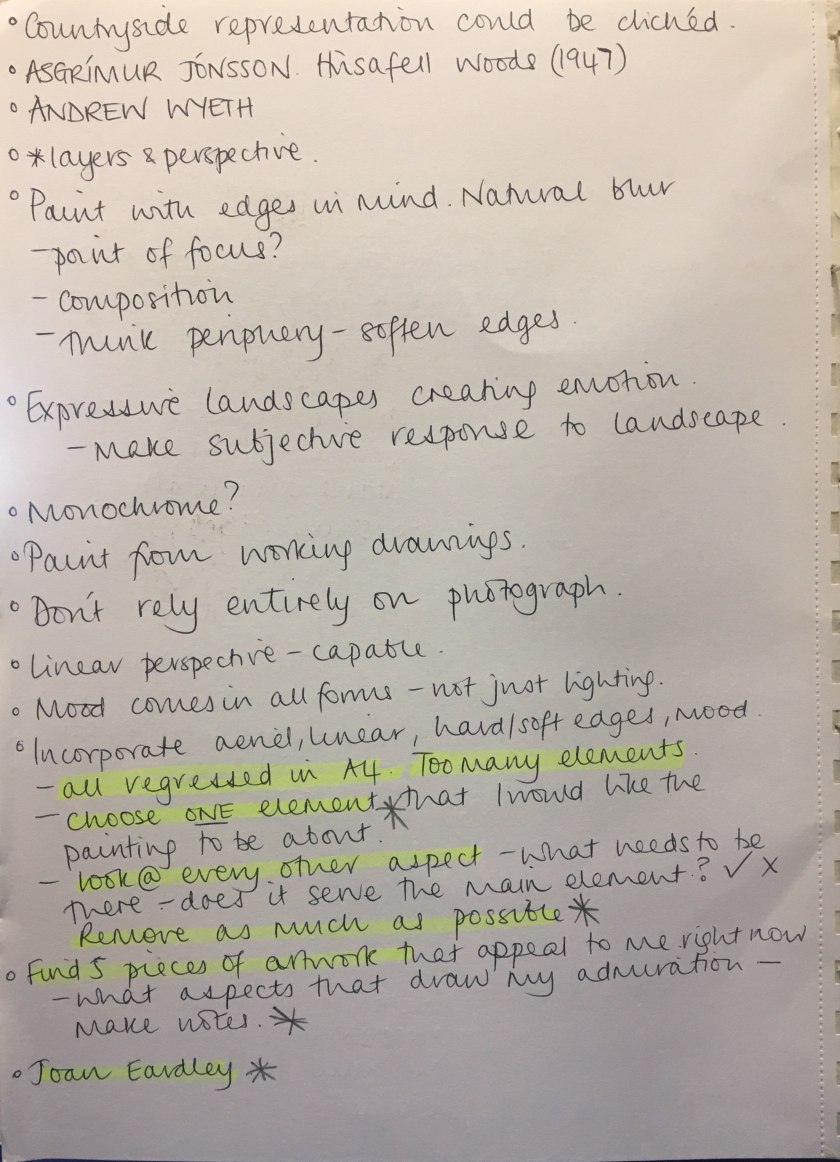 ° Countryside representation could be clichéd.
° ASGRÍMUR JÓNSSON. Húsafell Woods (1947)
° ANDREW WYETH
° *layers & perspective.
° Paint with edges in mind. Natural blur
- point of focus?
- composition
- Think periphery - soften edges.
° Expressive landscapes creating emotion.
- Make subjective response to landscape.
° Monochrome?
° Paint from working drawings.
° Don't rely entirely on photograph.
° Linear perspective - capable.
° Mood comes in all forms - not just lighting.
° Incorporate aeriel, linear, hard/soft edges, mood.
- all regressed in A4. Too many elements.
- choose ONE element* that I would like the
painting to be about.
- look @ every other aspect - what needs to be
there - does it serve the main element? ✓ x
Remove as much as possible *
° Find 5 pieces of artwork that appeal to me right now
- what aspects that draw my admiration -
make notes. *
° Joan Eardley *